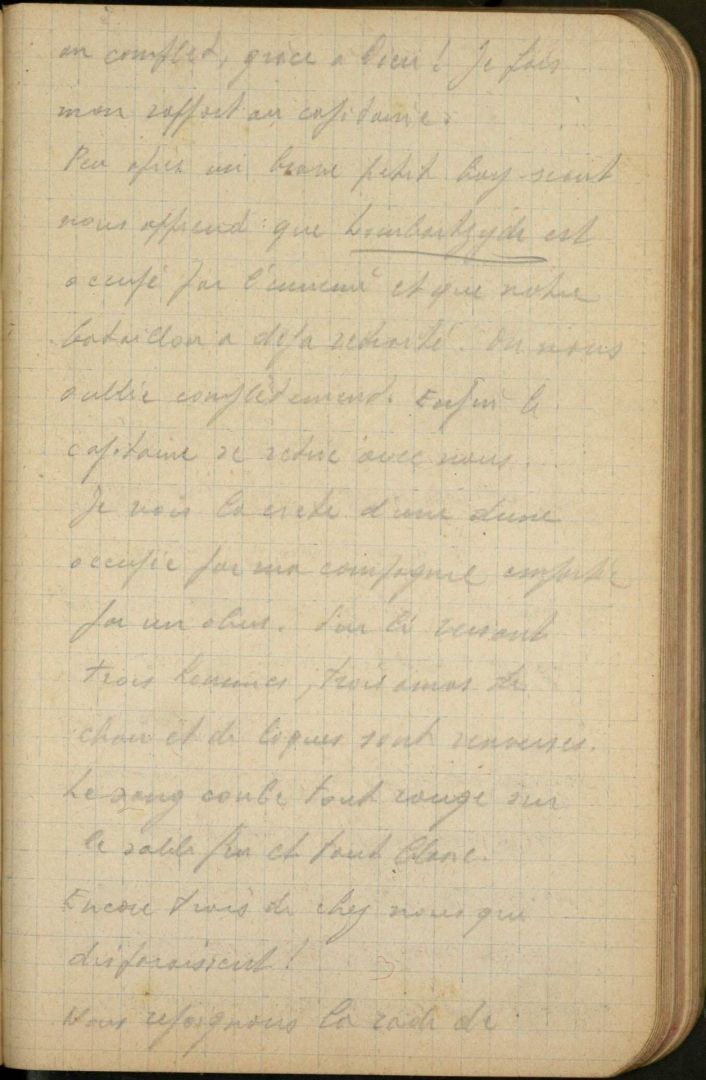 au complet, grâce à Dieu ! Je fais
mon rapport au capitaine.
Peu après un brave petit boy-scout
nous apprend que Lombartzyde est
occupé par l'ennemi et que notre
bataillon a déjà retraité. On nous
oublie complètement. Enfin le
capitaine se retire avec nous.
Je vois la crête d'une dune
occupée par ma compagnie emportée
par un obus. Sur le versant
trois hommes, trois amas de
chair et de loques sont renversés.
Le sang coule tout rouge sur
le sable fin et tout blanc.
Encore trois de chez nous qui
disparaissent !
Nous rejoignons la route de